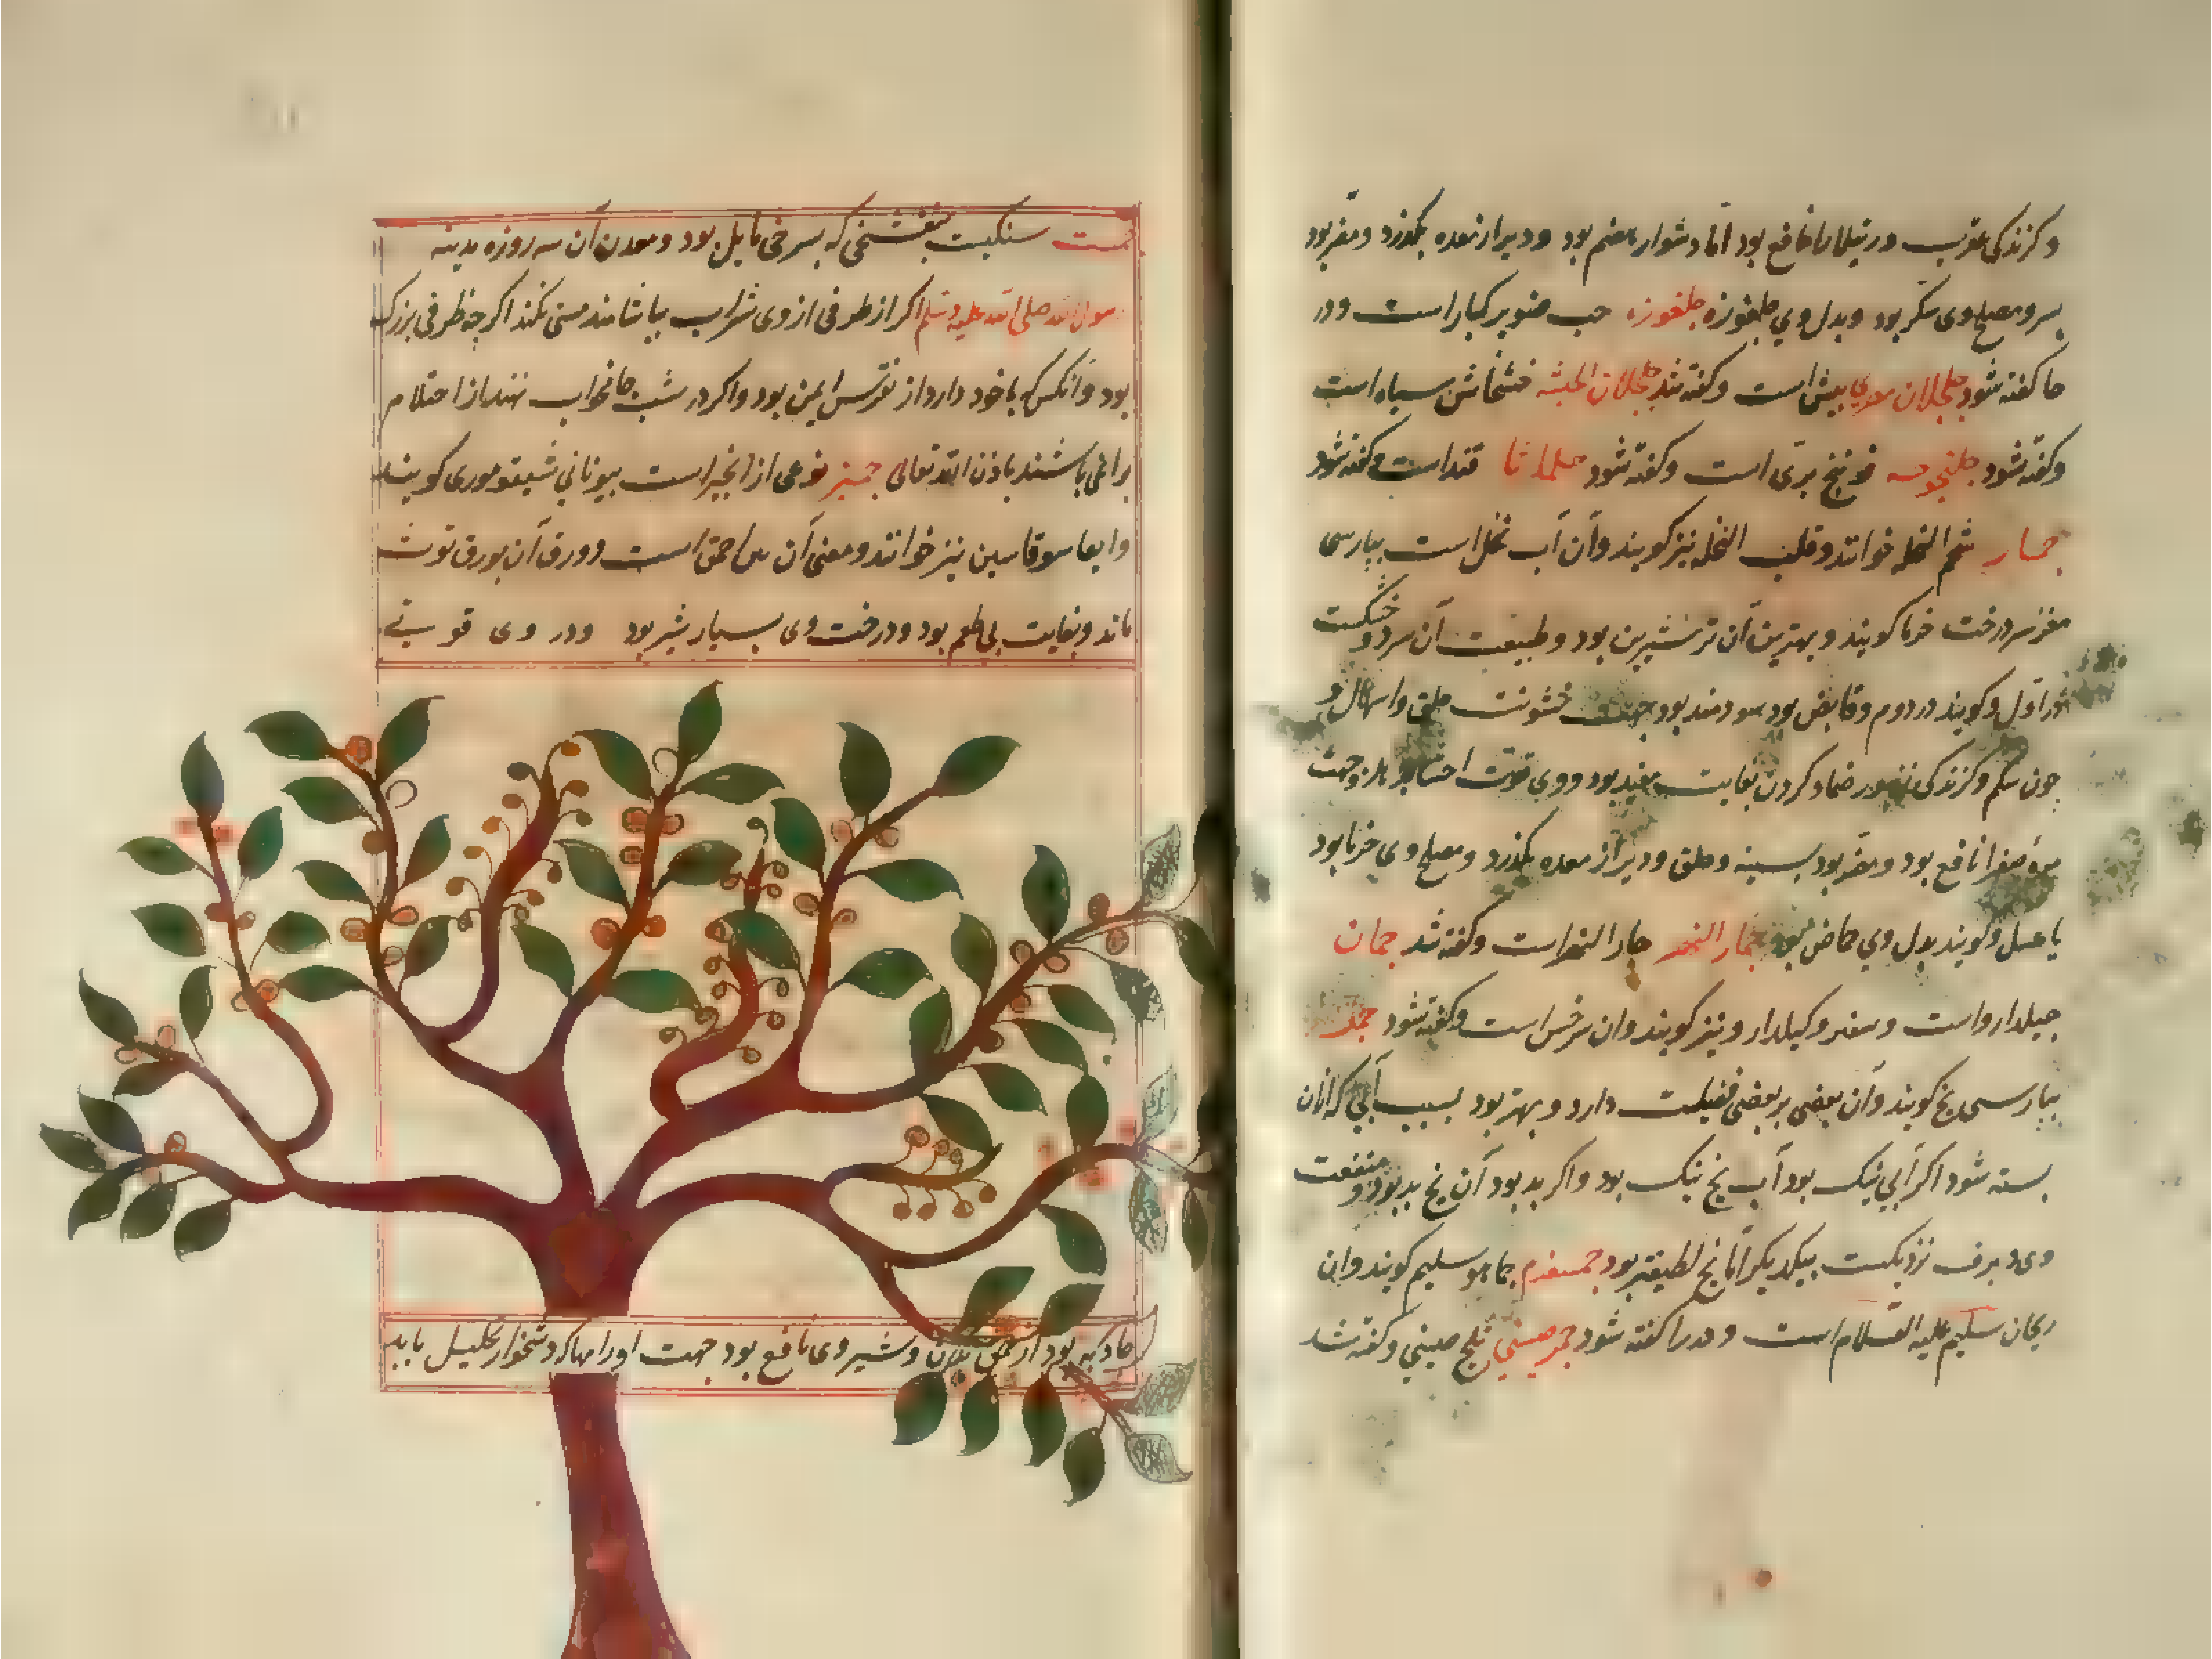 و کزندکی عقرب و رتیلا را نافع بود اما دشوار هضم بود و دیر از معده بکذرد و مضر بود
بسر و مصلح وی شکر بود و بدل وی جلغوزه جلغوزه حب صنوبر کبار است و در
حا کفته شود جلجلان مصری بیش است و کفته شد جلجلان الحبشه خشخاش سیاه است
و کفته شود فونج بری است و کفته شود قند است و کفته شود
جمار شحم النخله خوانند و قلب النخله نیز کویند و آن آب نخل است بپارسی
مغز سر درخت خرما کویند و بهترین آن تر شیرین بود و طبیعت آن سرد و خشکست
در اول و کویند در دوم و قابض بود سودمند بود جهت خشونت حلق و اسهال و
چون شکم و کزندکی زنبور ضماد کردن بغایت مفید بود و وی قوت احشا بدهد و جهت
مره صفرا نافع بود و مضر بود بسینه و حلق و دیر از معده بکذرد و مصلح وی خرما بود
یا عسل و کویند بدل وی حماض بود جمار النهر جار النهر است و کفته شد جمان
جیلدارو است و نیز کویند و ان سرخس است و کفته شود جمد
بپارسی یخ کویند و آن بعضی بر بعضی فضیلت دارد و بهتر بود بسبب آبی که از ان
بسته شود اکر آبی نیک بود آب یخ نیک بود و اکر بد بود آن یخ بد بود و منفعت
وی و برف نزدیکست بیکدیکر اما یخ لطیفتر بود جمسفرم جماهو سلیم کویند و ان
ریحان سلیم علیه السلام است و کفته شود جمر صینی ثلج صینی و کفته شد
جمست سنکیست بنفش که بسرخی مایل بود و معدن آن سه روزه مدینه
رسول الله صلی الله علیه و سلم اکر از ظرفی از وی شراب بیاشامند مستی نکند اکرچه ظرفی بزرک
بود و آنکس که با خود دارد از نقرس ایمن بود و اکر در شب جامه خواب نهند از احتلام
ایمن باشند باذن الله تعالی جمیز نوعی از انجیر است بیونانی کویند
و نیز خوانند و معنی آن احمق است و ورق آن بورق توت
ماند و بغایت بی طعم بود و درخت وی بسیار شیر بود و در وی قوتی
جاذبه بود و شیر وی نافع بود جهت اورامها که دشخوار تحلیل یابد